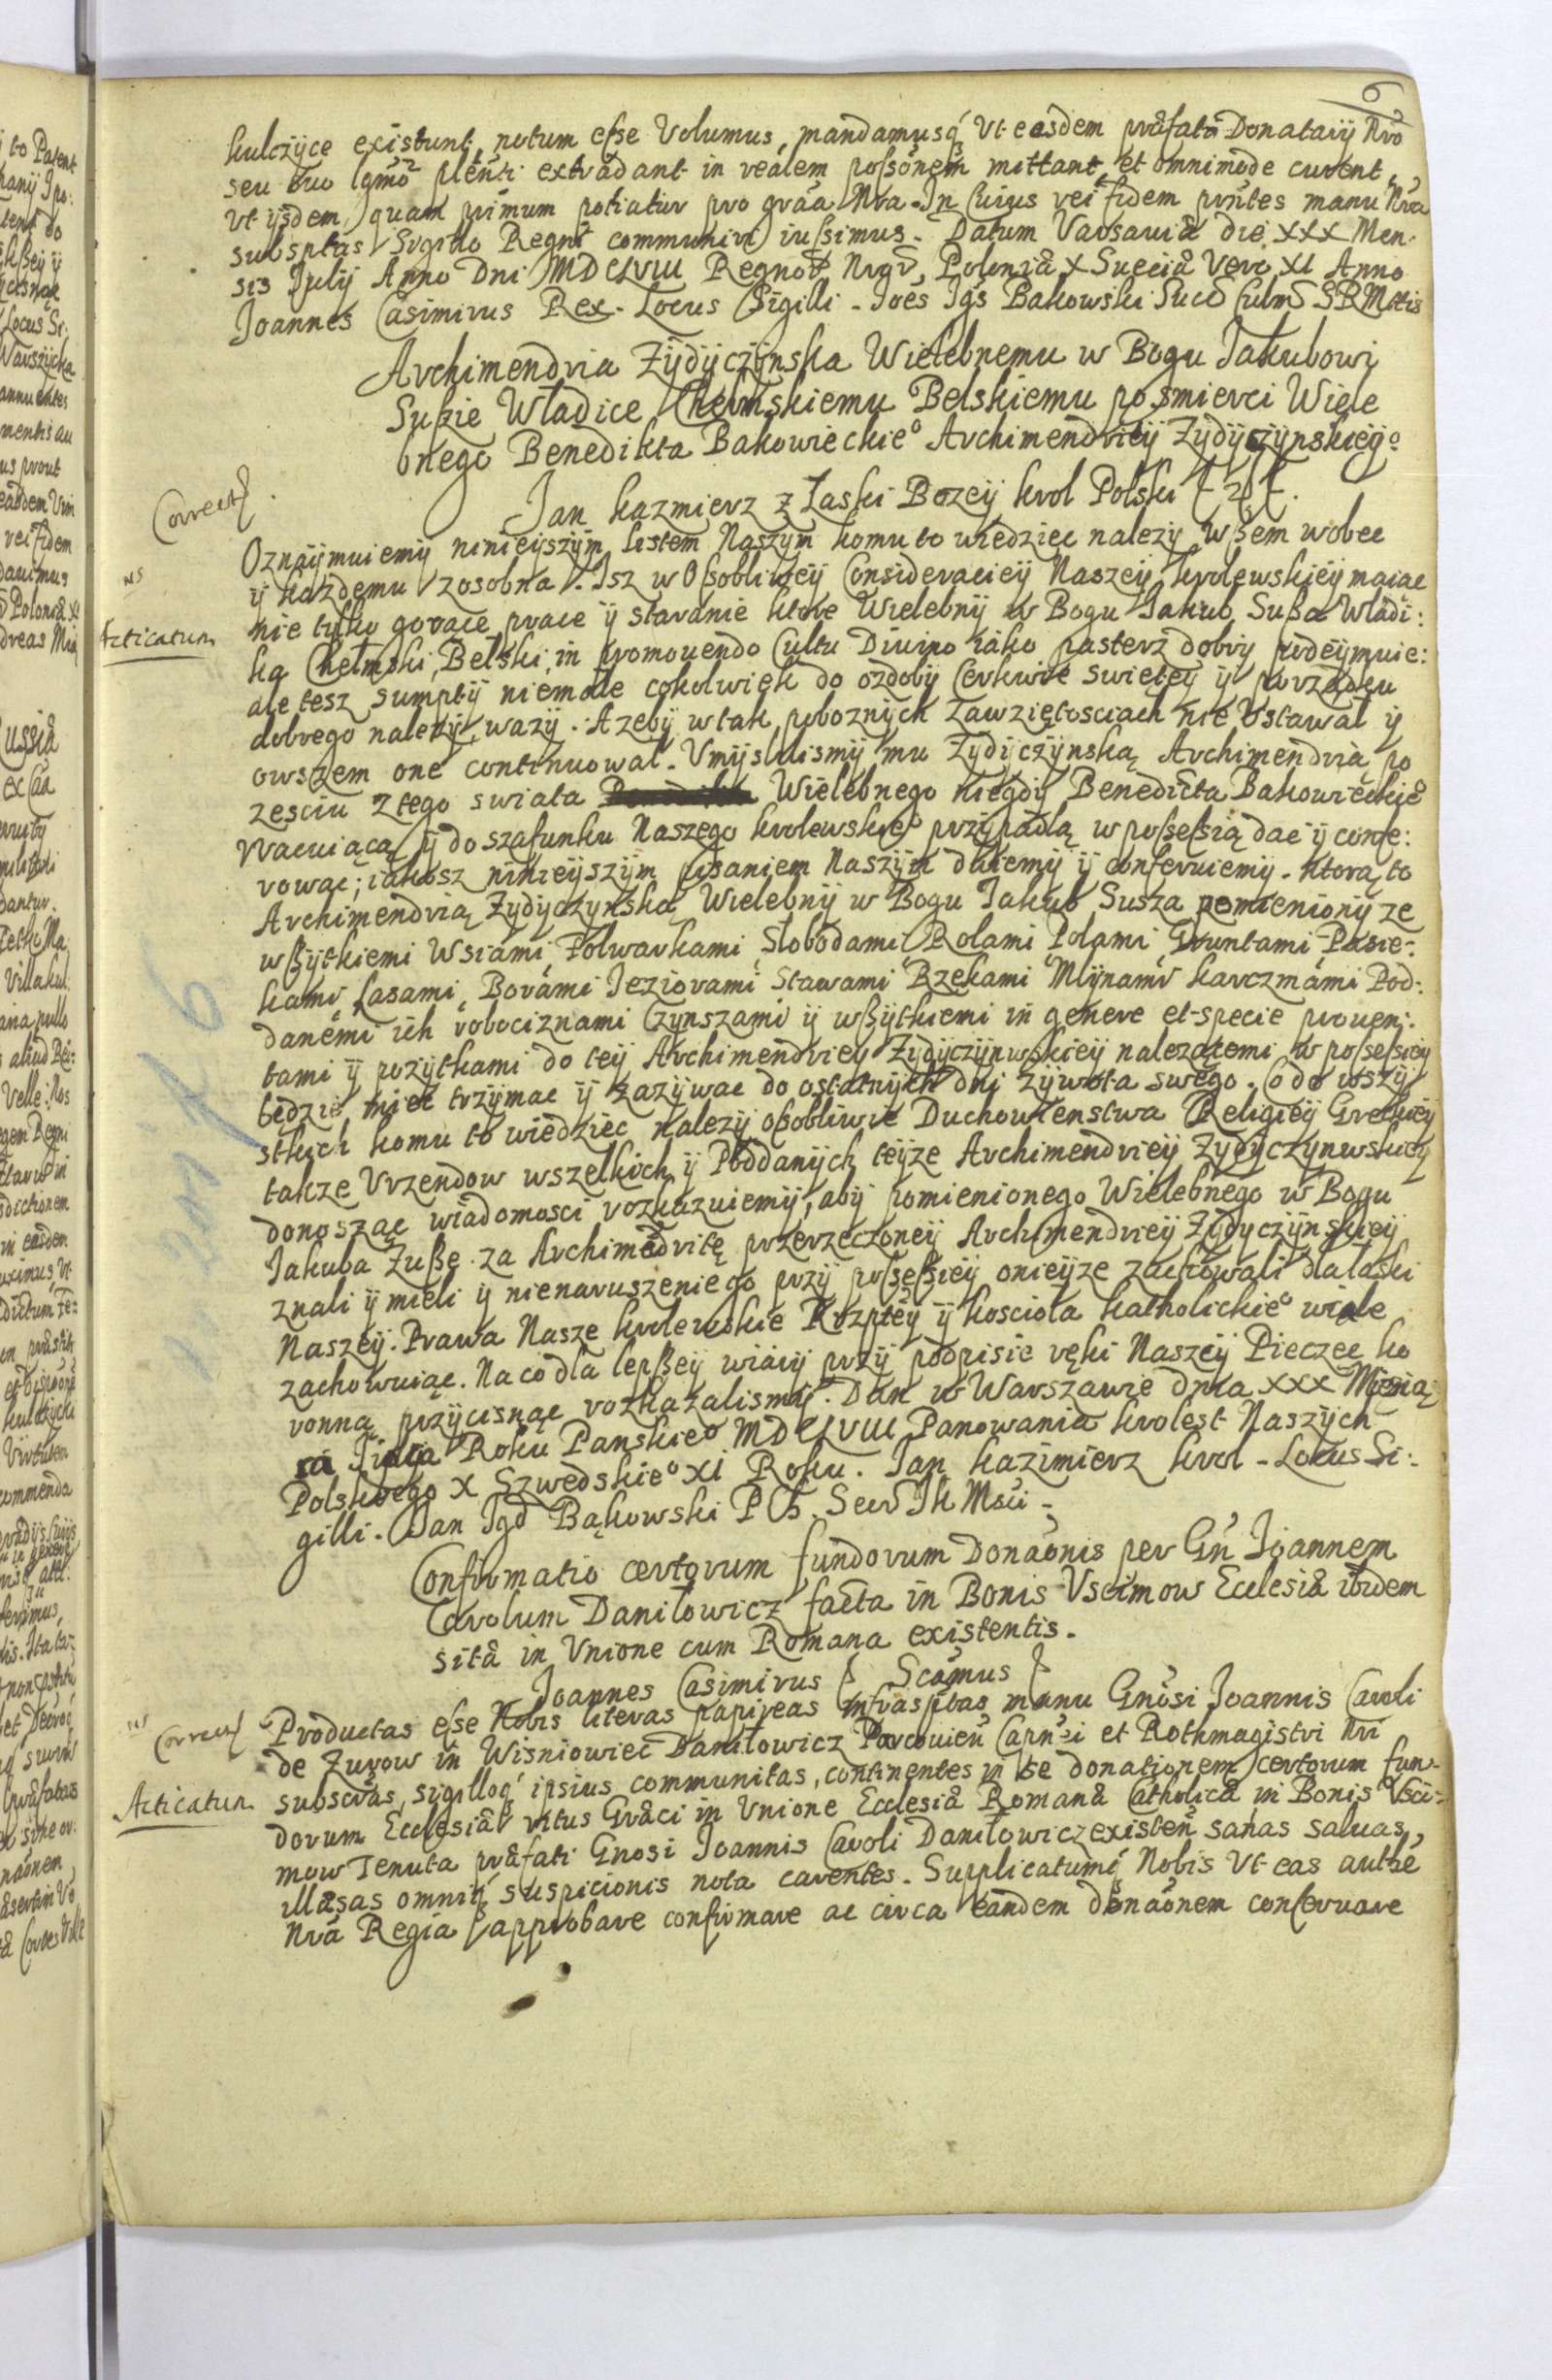 6
kulczyce existunt, notum esse Volumus, mandamusq́ Vt easdem præfatæ Donatarÿ Nrō
seu suo lgmō plenti extradant in realem possōnem mittant, et omnimode curent,
Vt ijsdem quam primum potiatur pro grāa Nra. In Cuius rei fidem prntes manu Nra
subsptas Sigillo Regni communiri iussimus. Datum Varsaviæ die XXX Men-
sis July Anno Dni MDCLVIII Regnor Nror, Poloniæ X Sueciæ Vero XI Anno
Joannes Casimirus Rex. Locus Sigilli. Joēs Igs Bakowski Succ Culm S R Mttis
Archimendria Zydyczynska Wielebnemu w Bogu Jakubowi
Suszie Wladice Chelmskiemu Belskiemu po smierci Wiele
bnego Benedikta Bakowieckieo Archimendrity Zydyczynskieyo
Correct
Jan kazmierz z Laski Bozey krol Polski
Oznaymuiemy ninieyszym listem Naszym komu to wiedziec nalezy wszem wobec
ÿ kazdemu zosobna. Isz w Osobliwey Consideraciey Naszey krolewskiey maiac
Acticatum
nie tylko gorace prace ÿ staranie ktore Wielebny w Bogu Jakub Susza Wladi:
ka Chelmski, Belski, in promouendo Cultu Diuino iako pasterz dobry podeymuie:
ale tesz sumpty niemale cokolwiek do ozdoby Cerkwie swietey ÿ porzadku
dobrego nalezy, wazy. Azeby w tak poboznych zawziętosciach nie Vstawal ÿ
owszem one continuowal. Vmyslilismy mu Zydyczynską Archimendrią po
zesciu z tego swiata Wielebnego niegdy Benedicta Bakowieckieo
Wacuiącą ÿ do szafunku Naszego krolewskieo przypadlą w possessią dac ÿ confe:
rowac; iakosz ninieyszym pisaniem Naszym daiemy ÿ conferuiemy. ktorą to
Archimendrią Zydyczynską Wielebny w Bogu Jakub Susza pomieniony ze
wszytkiemi Wsiami, Folwarkami, Slobodami, Rolami, Polami, Gruntami, Pasie:
kami, Lasami, Borami Jeziorami Stawami Rzekami Mlynami karczmami Pod:
danemi ich robociznami Czynszami ÿ wszytkiemi in genere et specie prouen:
tami ÿ pozytkami do tey Archimendriey Zydyczynwskiey nalezacemi w possessiey
bedzie miec trzymac ÿ zazywac do ostatnych dni zywota swego. Co do wszy
stkich komu to wiedziec nalezy osobliwie Duchowienstwa Religiey Greckiey
takze Vrzendow wszelkich ÿ Poddanych teyze Archimendriey Zydyczynwskiey
donosząc wiadomosci rozkazuiemy, aby pomienionego Wielebnego w Bogu
Jakuba Zusze za Archimēdritę przerzeczoney Archimendriey Zydyczynskiey
znali ÿ mieli ÿ nienaruszenie go przy possessiey onieyze zachowali dla laski
Naszey. Prawa Nasze krolewskie Rzptey ÿ kosciola katholickieo wcale
zachowuiąc. Na co dla lepszey wiary przy podpisie ręki Naszey Pieczec ko
ronną przycisnąc rozkazalismy. Dan w Warszawie dnia XXX Miesią
ca Roku Panskieo MDCLVIII Panowania krolest Naszych
Polskiego X Szwedskieo XI Roku. Jan kazimierz krol - Locus Si:
gilli. Jan Igō Bąkowski P Ch Secr Jk Msci.
Confirmatio certorum fundorum Donaōnis per Gn Joannem
Carolum Danilowicz facta in Bonis Vscimow Ecclesiæ ibidem
sitæ in Vnione cum Romana existentis.
Joannes Casimirus Scāmus
Correct
Productas esse Nobis literas papireas infrascptas manu Gnōsi Joannis Caroli
de Zurow in Wisniowiec Danilowicz Parcouien Capn-i et Rothmagistri Nri
Acticatum
subscras, sigilloq́ ipsius communitas, continentes in se donationem certorum fun-
dorum Ecclesiæ ritus Græci in Vnione Ecclesiæ Romanæ Catholicæ in Bonis Vsci-
mow Tenuta præfati Gnosi Joannis Caroli Danilowicz existen sanas saluas,
illæsas omniq́ suspicionis nota carentes. Supplicatumq́ Nobis Vt eas authē
Nrā Regia approbare confirmare ac circa eandem donaōnem conseruare